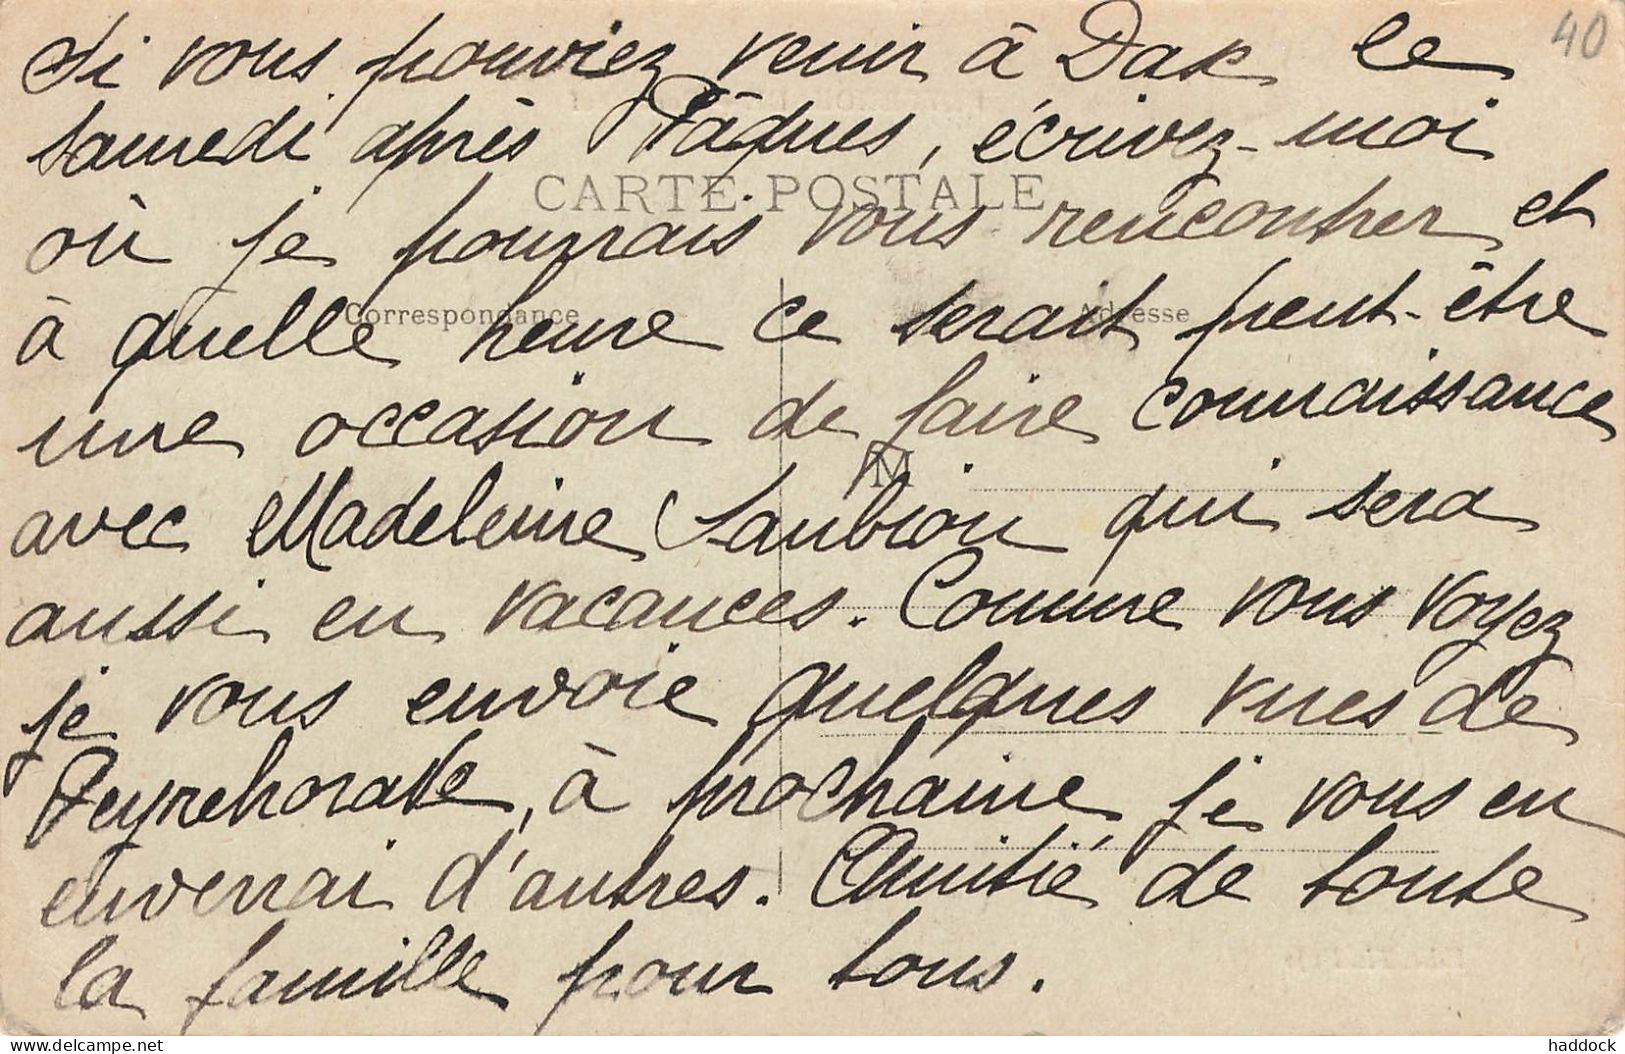 40
Si vous pouviez venir à Dax le
samedi après Pâques, écrivez-moi
CARTE POSTALE
où je pourrais vous rencontrer et
Correspondance
Adresse
à quelle heure ce serait peut-être
une occasion de faire connaissance
M
avec Madeleine Saubion qui sera
aussi en vacances. Comme vous voyez
je vous envoie quelques vues de
Peyrehorade, à prochaine je vous en
enverrai d'autres. Amitié de toute
la famille pour tous.
delcampe.net
haddock